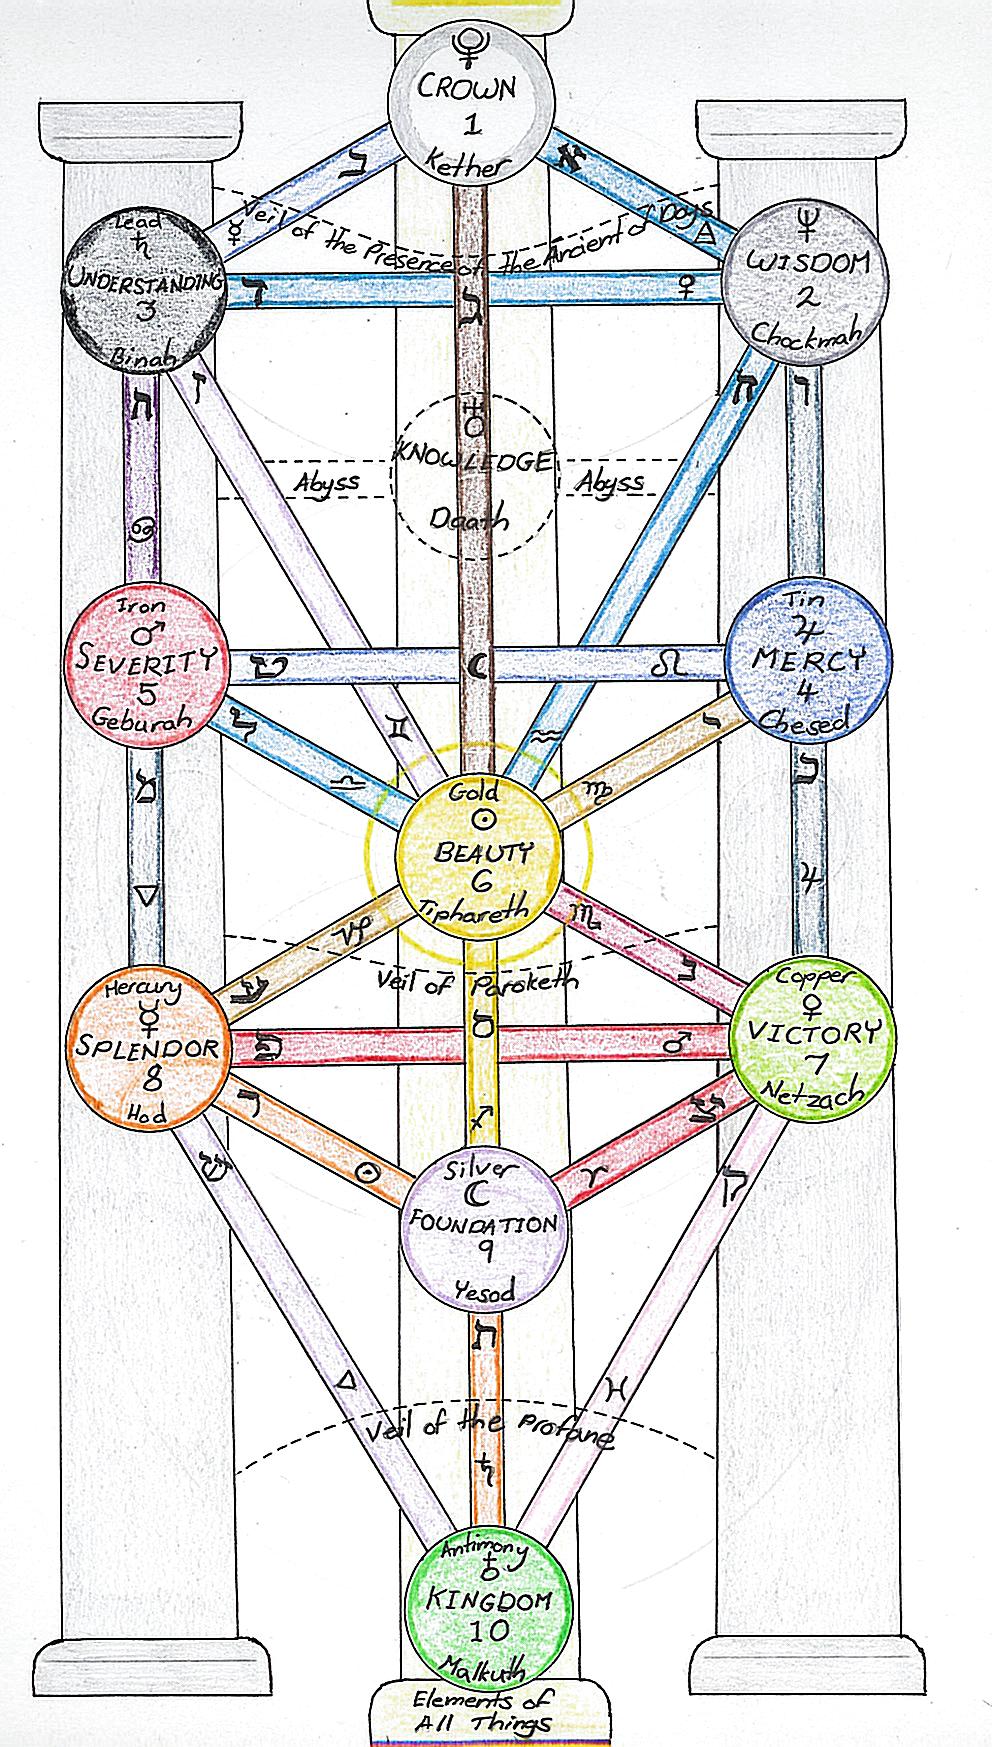 ♇
CROWN
1
Kether
ב
א
☿
Veil of the Presence of the Ancient of Days
△
Lead
♄
UNDERSTANDING
3
Binah
♆
WISDOM
2
Chockmah
ד
♀
ג
ח
ז
ה
ו
KNOWLEDGE
Daath
Abyss
Abyss
♋
Iron
♂
SEVERITY
5
Geburah
Tin
♃
MERCY
4
Chesed
ט
☾
♌
ל
♊
♒
י
♎
♍
מ
כ
Gold
☉
BEAUTY
6
Tiphareth
▽
♃
♑
♏
Veil of Paroketh
ע
נ
Mercury
☿
SPLENDOR
8
Hod
Copper
♀
VICTORY
7
Netzach
ס
פ
♂
♐
ר
צ
ש
☉
♈
ק
Silver
☾
FOUNDATION
9
Yesod
ת
△
♓
Veil of the Profane
♄
Antimony
♁
KINGDOM
10
Malkuth
Elements of
All Things